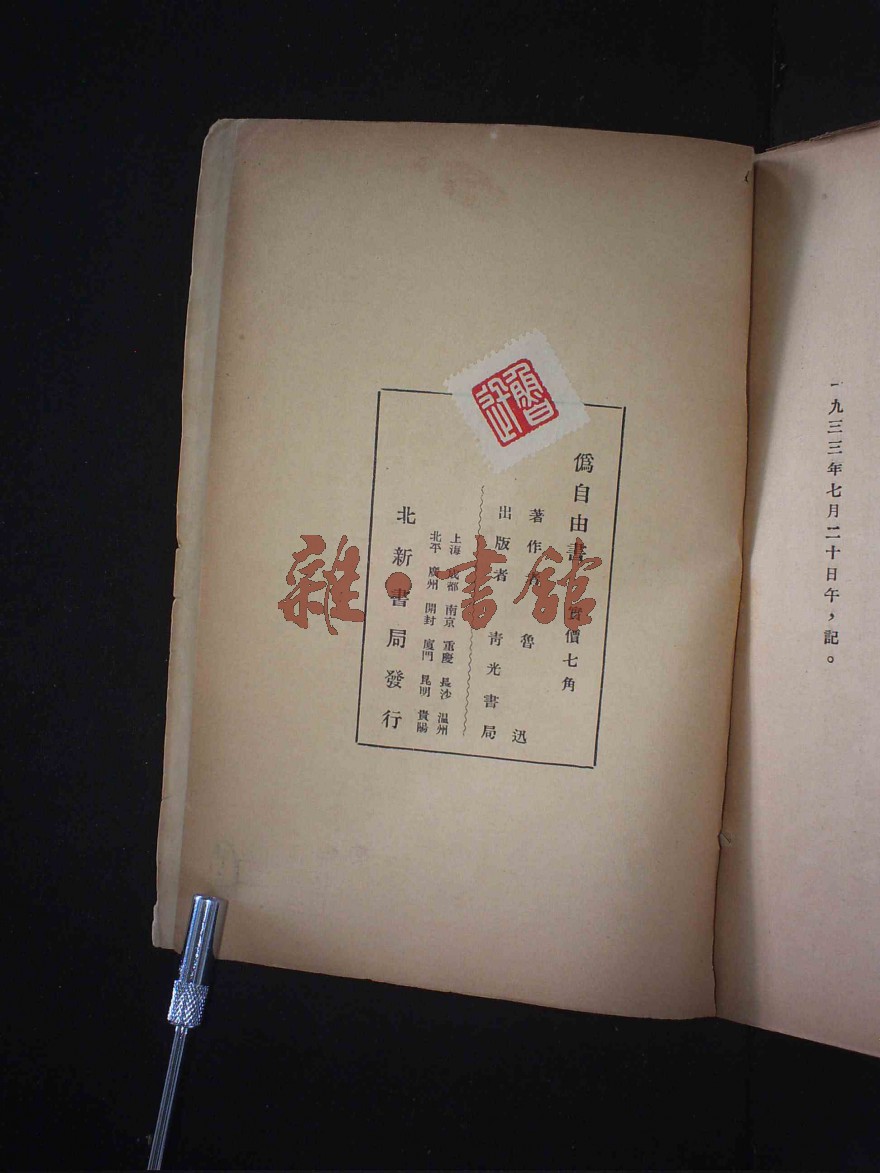 一九三三年七月二十日午，記。
魯迅
僞自由書 實價七角
著作者 魯迅
出版者 青光書局
上海 成都 南京 重慶 長沙 温州
北平 廣州 開封 廈門 昆明 貴陽
北新書局發行
雜·書館